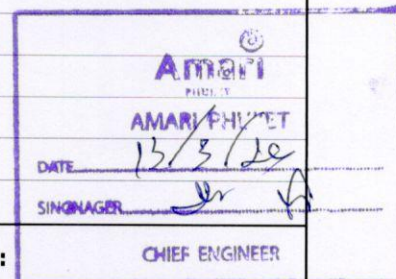 Amari
PHUKET
AMARI PHUKET
DATE 13/3/20
CHIEF ENGINEER
: